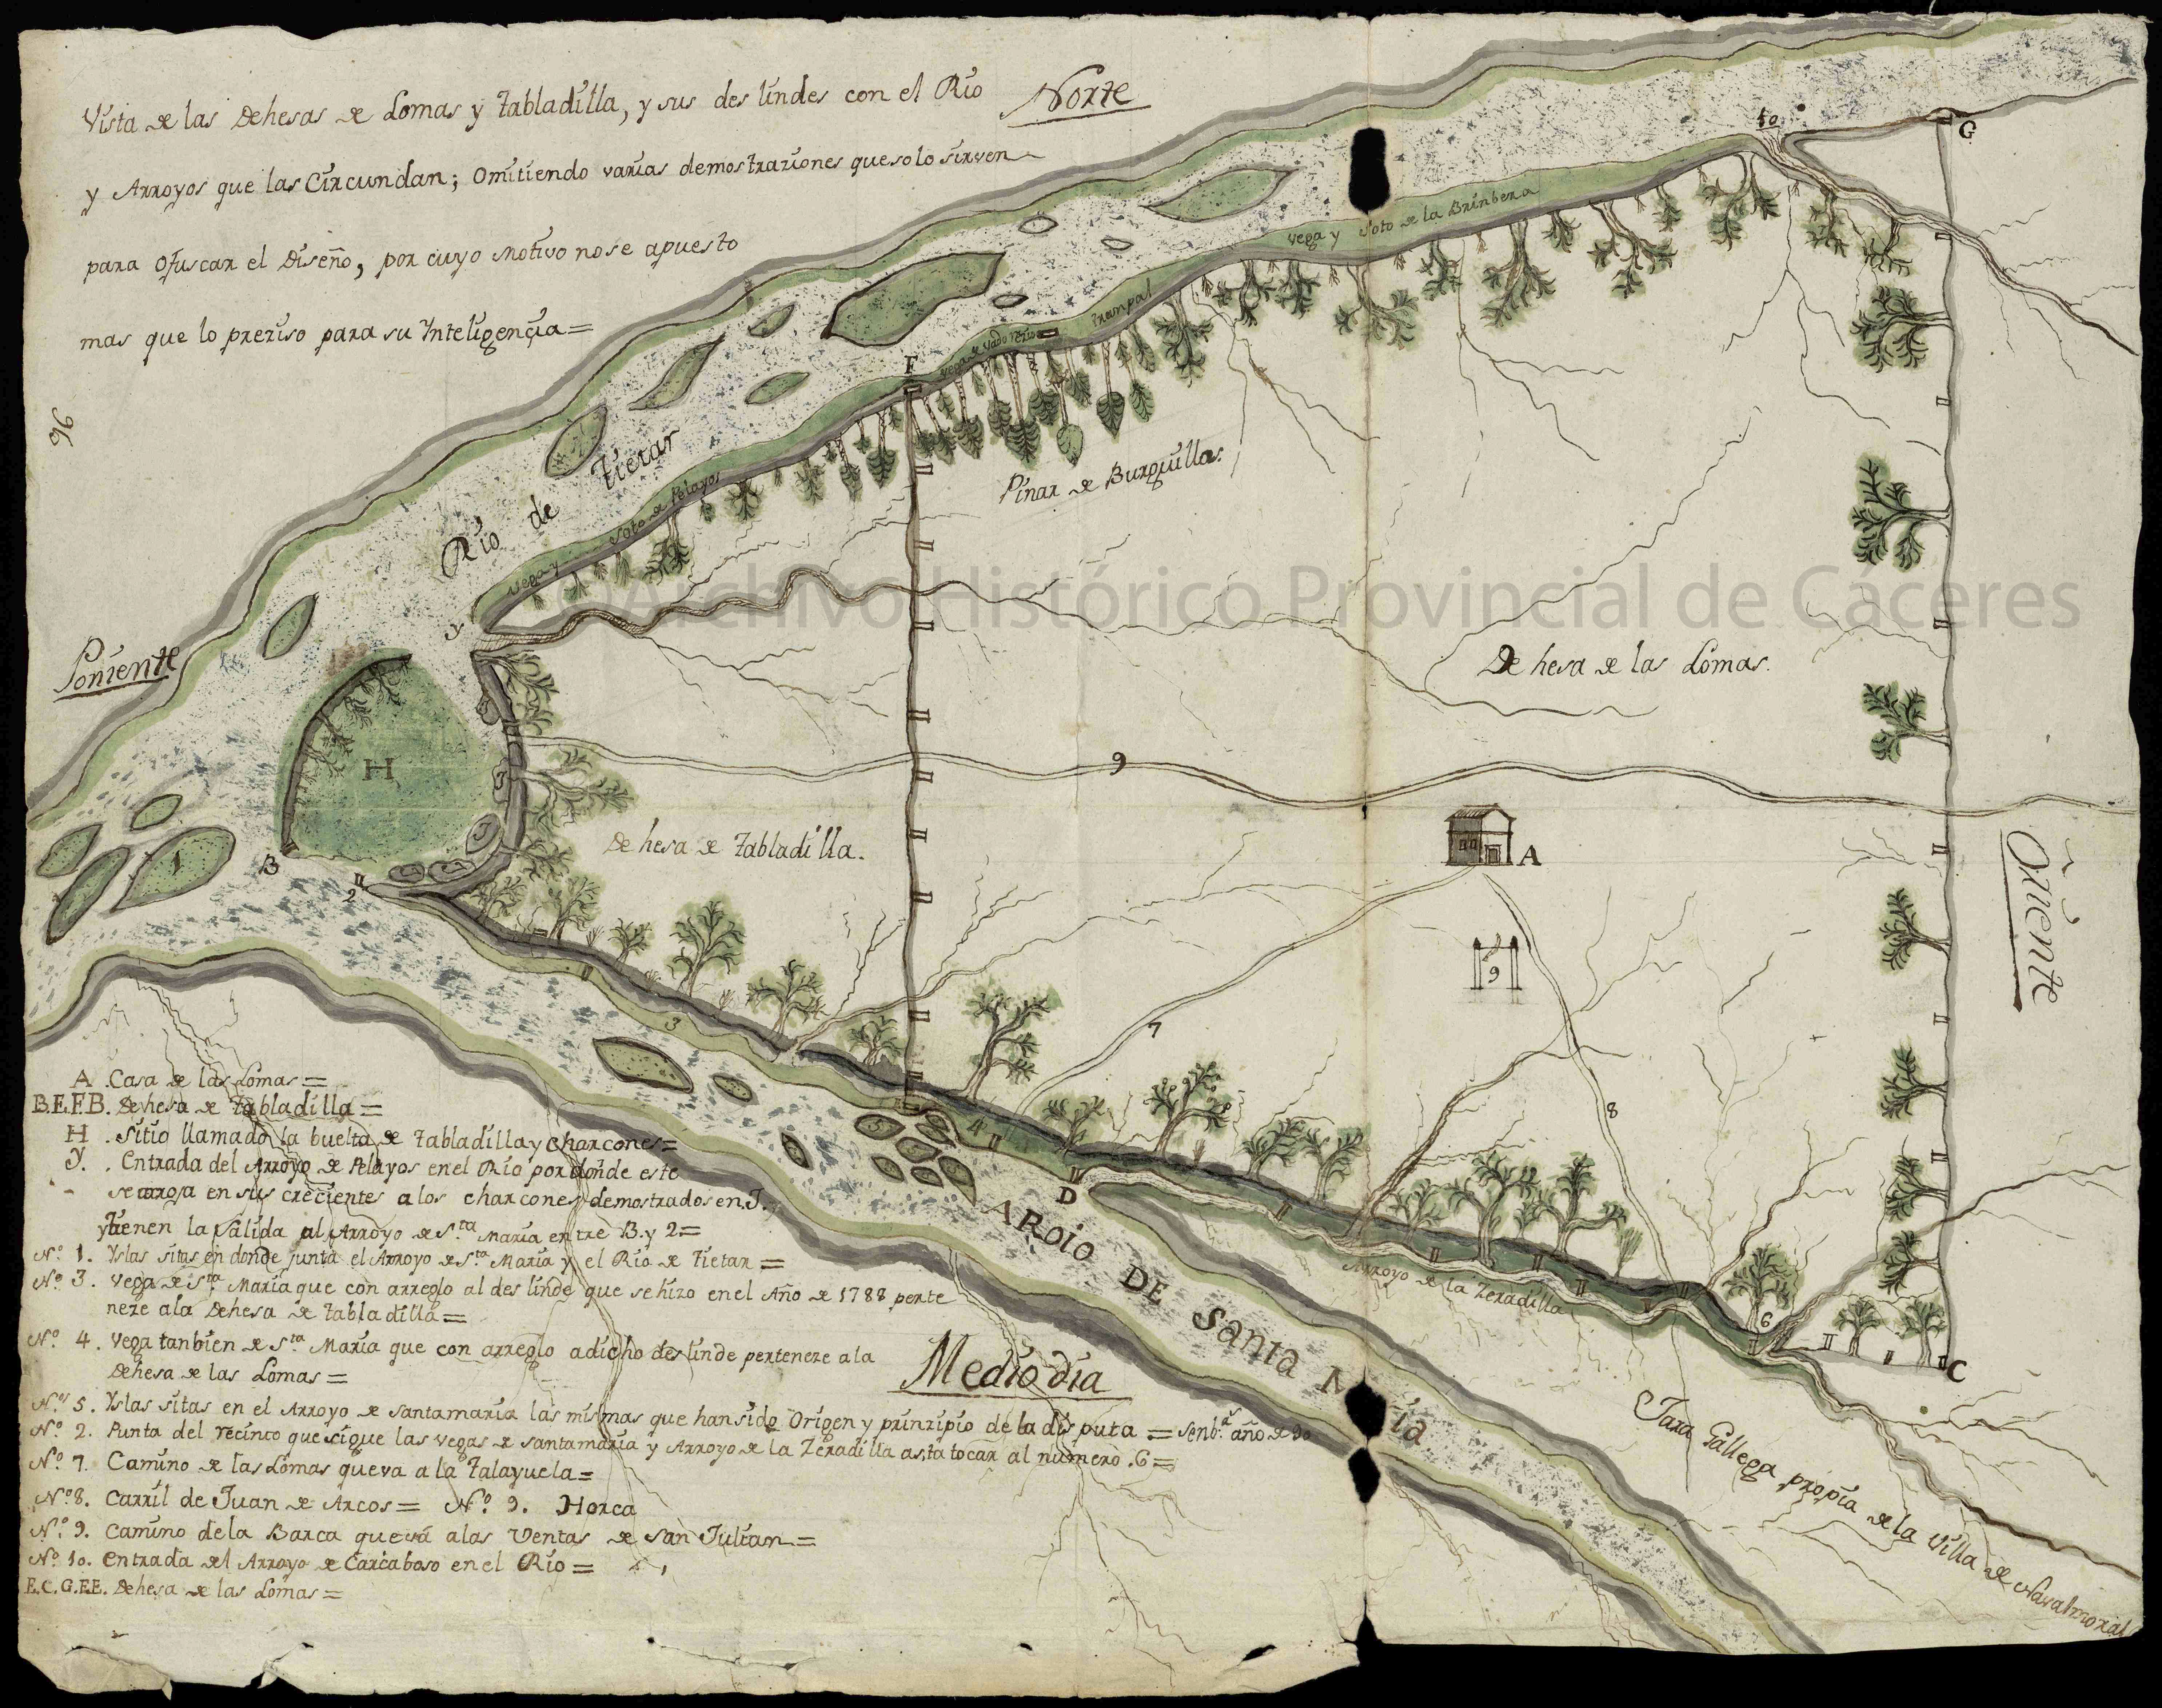 Vista de las Dehesas de Lomas y Tabladilla, y sus deslindes con el Rio
y Arroyos que las Circundan; Omitiendo varias demostraziones que solo sirven
para Ofuscar el Diseño, por cuyo Motivo no se a puesto
mas que lo preziso para su Inteligençia=
Norte
96
10
G
Vega y Soto de la Brinbera
trampal
Vega de Vado
F
Rio de Tietar
Vega y Soto de Pelayos
Pinar de Burquillas.
©Archivo Histórico Provincial de Cáceres
Y
Poniente
Dehesa de las Lomas.
H
9
J
J
1
B
2
J
J
Dehesa de Tabladilla.
A
Oriente
9
3
7
8
5
4
D
AROIO DE Santa M ria
Arroyo de la Zeradilla
6
C
Jara Gallega propia de la Villa de Navalmoral
Medio dia
A . Casa de las Lomas=
B.E.F.B. Dehesa de Tabladilla=
H . Sitio llamado la buelta de Tabladilla y Charcones=
Y. . Entrada del Arroyo de Pelayos en el Rio por donde este
se arroja en sus crecientes a los charcones demostrados en J.
y tienen la salida al Arroyo de S.ta Maria entre B. y 2=
N.o 1. Yslas sitas en donde junta el Arroyo de S.ta Maria y el Rio de Tietar=
N.o 3. Vega de S.ta Maria que con arreglo al deslinde que se hizo en el Año de 1788 perte
neze a la Dehesa de Tabladilla=
N.o 4. Vega tanbien de S.ta Maria que con arreglo a dicho deslinde perteneze a la
Dehesa de las Lomas=
N.o 5. Yslas sitas en el Arroyo de Santamaria las mismas que han sido Origen y prinzipio de la disputa = Senb.as año de 90
N.o 2. Punta del recinto que sigue las vegas de Santamaria y Arroyo de la Zeradilla asta tocar al numero .6=
N.o 7. Camino de las Lomas que va a la Talayuela=
N.o 8. Carril de Juan de Arcos= N.o 9. Horca
N.o 9. Camino de la Barca que vá a las Ventas de San Julian=
N.o 10. Entrada del Arroyo de Carcaboso en el Rio=
E.C.G.F.E. Dehesa de las Lomas=